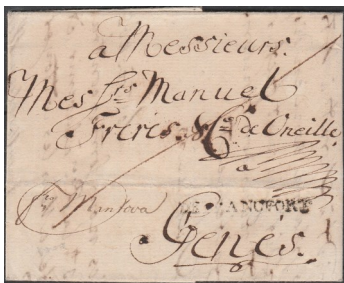 à Messieurs.
Messrs. Manuel
Freres & Co. de Oneille
a
frco Mantova
DE FRANCFORT
Genes.